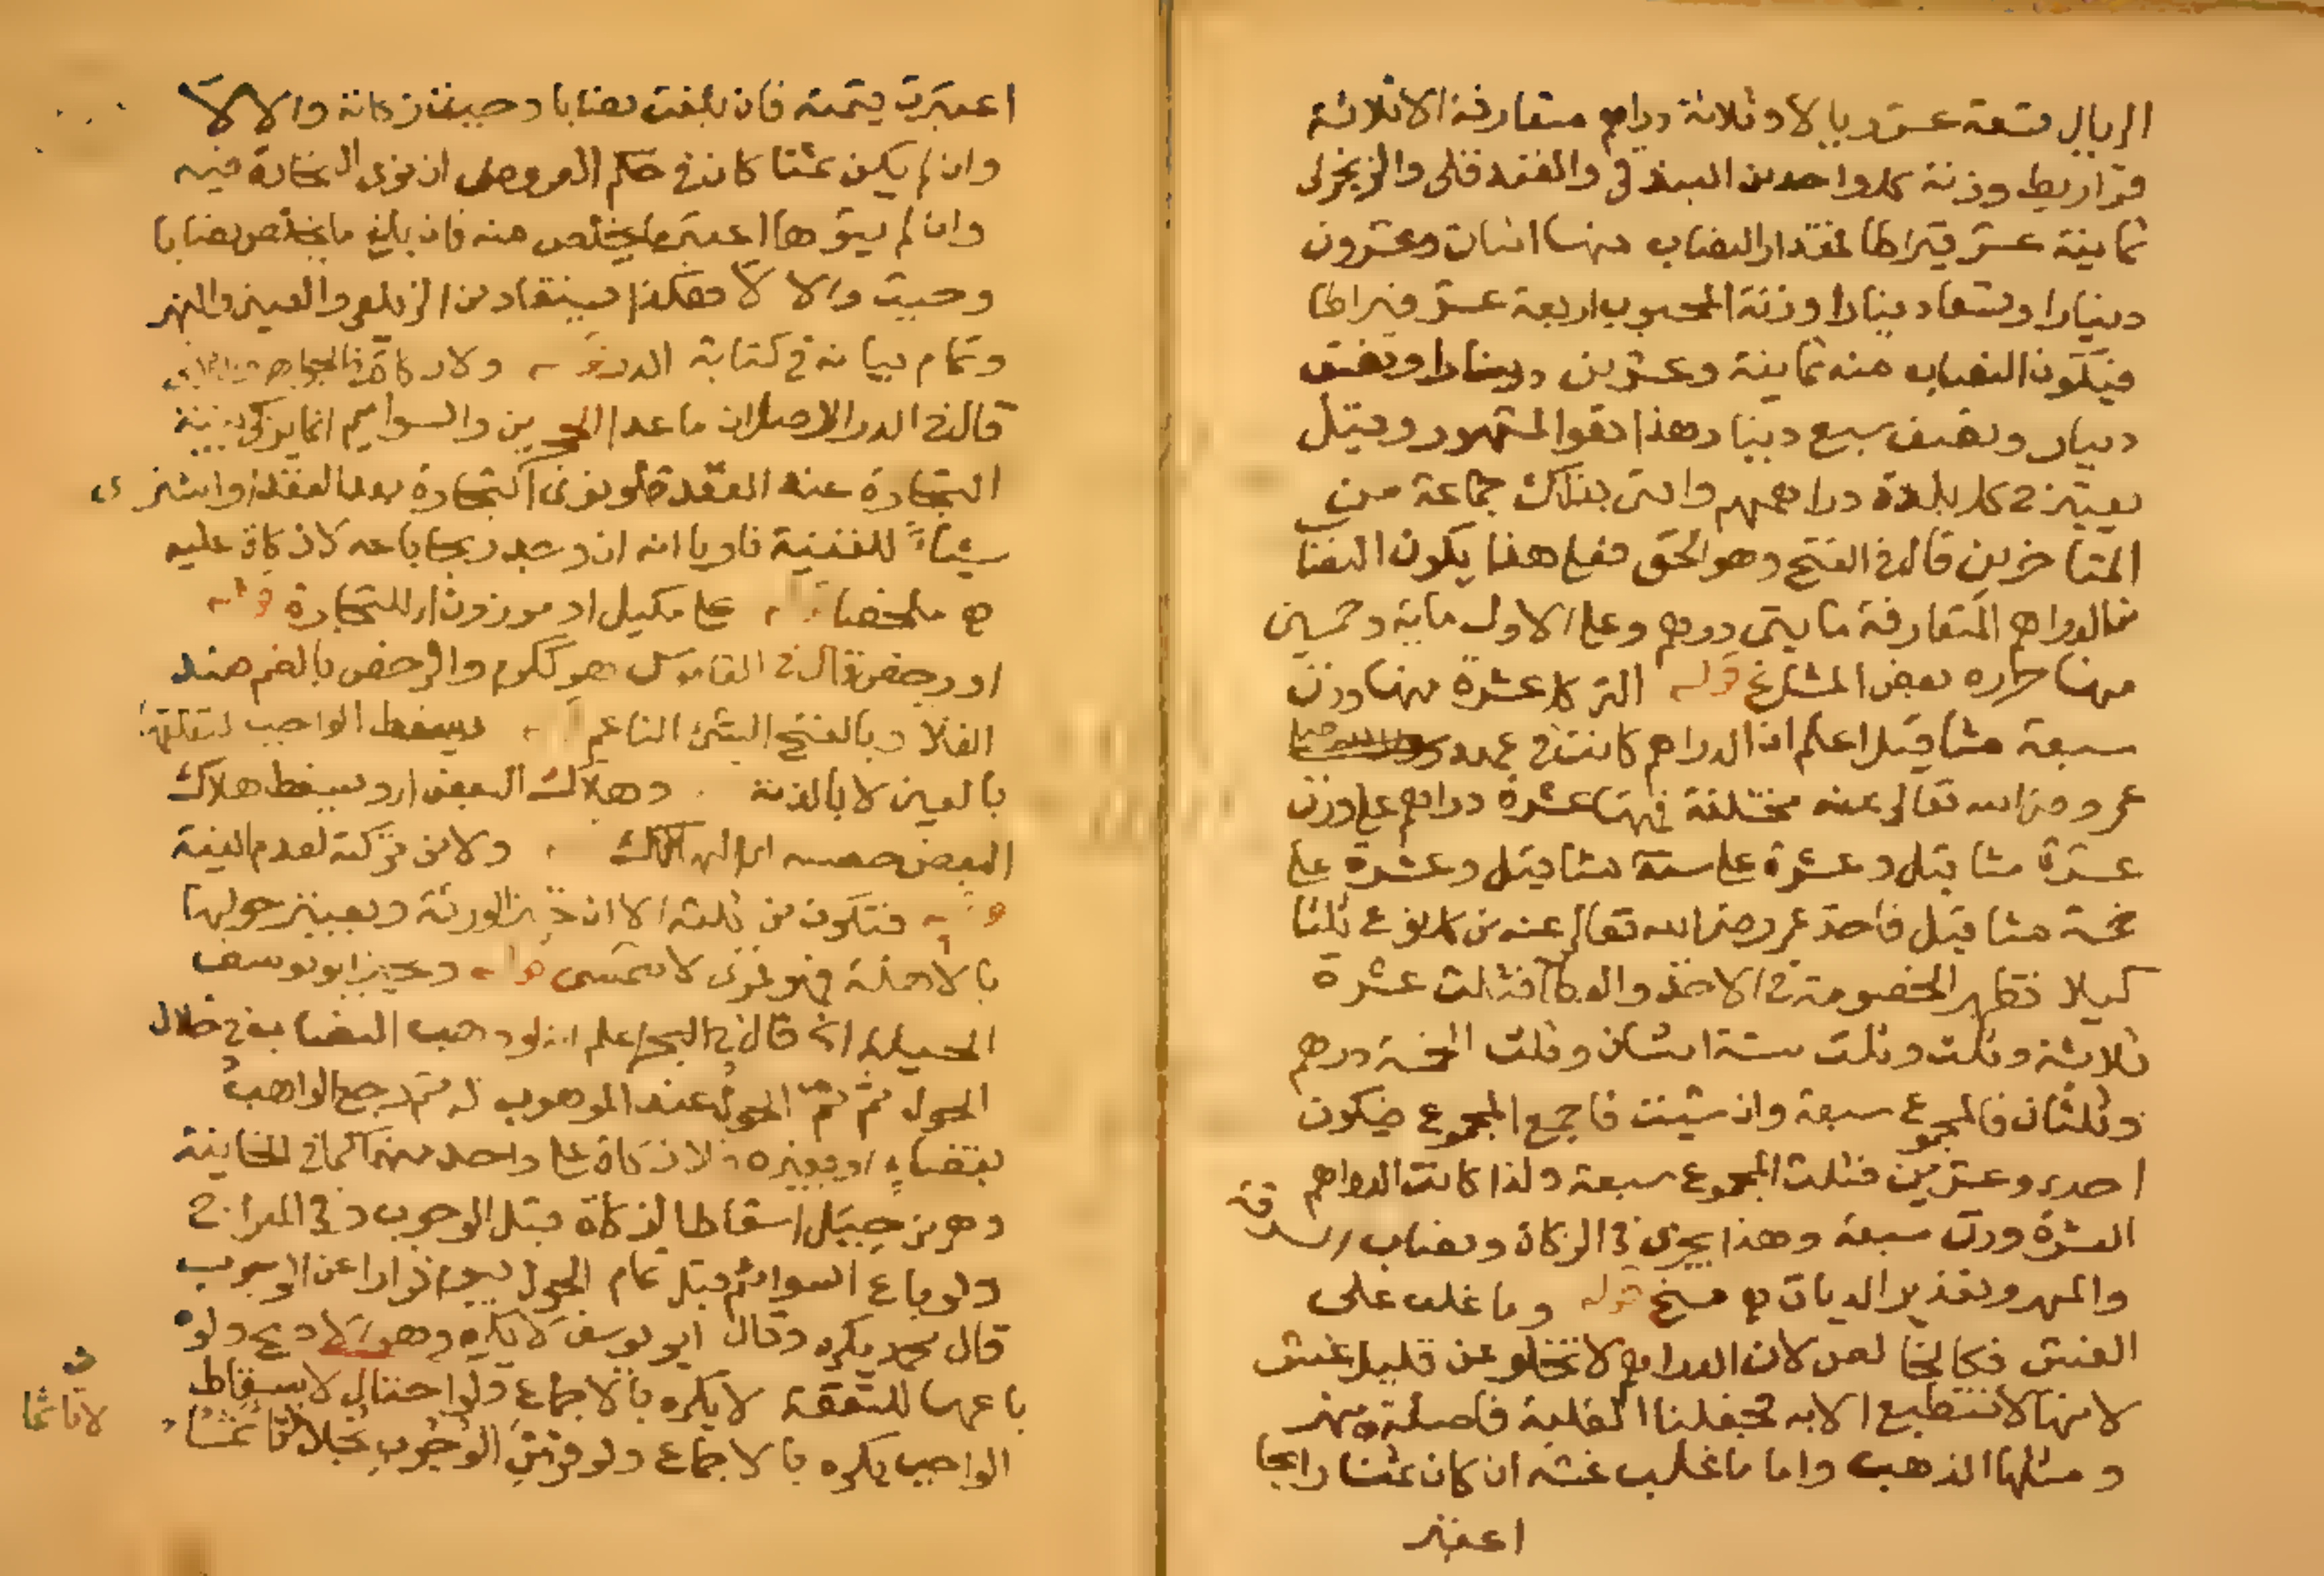 الريال تسعة عشر ريالا وثلاثة دراهم متعارفة الا ثلاثة
قراريط وزنة كل واحد من البندقي والفندقلي والزنجرلي
ثمانية عشر قيراطا لمقدار النصاب منها اثنان وعشرون
دينارا وتسعا دينارا وزنة المحبوب اربعة عشر قيراطا
فيكون النصاب منه ثمانية وعشرين دينارا ونصف
دينار ونصف سبع دينار وهذا هو المشهور وقيل
يعتبر في كل بلدة دراهمهم وافتى بذلك جماعة من
المتاخرين قال في الفتح وهو الحق فعلى هذا يكون النصاب
من الدراهم المتعارفة مايتي درهم وعلى الاول ماية وخمسين
منها حرره بعض المشايخ قوله التي كل عشرة منها وزن
سبعة مثاقيل اعلم ان الدراهم كانت في عهد
عمر رضي الله تعالى عنه مختلفة فمنها عشرة دراهم على وزن
عشرة مثاقيل وعشرة على ستة مثاقيل وعشرة على
خمسة مثاقيل فاخذ عمر رضي الله تعالى عنه من كل نوع ثلثا
كيلا تظهر الخصومة في الاخذ والعطا فثلث عشرة
ثلاثة وثلث وثلث ستة اثنان وثلث الخمسة درهم
وثلثان فالمجموع سبعة وان شيت فاجمع المجموع فيكون
احدى وعشرين فثلث المجموع سبعة ولذا كانت الدراهم
العشرة وزن سبعة وهذا يجري في الزكاة ونصاب السرقة
والمهر وتقدير الديات ح منح قوله وما غلب على
الغش فكالخالص لان الدراهم لا تخلو عن قليل غش
لانها لا تنطبع الا به فجعلنا الغلبة فاصلة نهر
ومثلها الذهب واما ما غلب غشه ان كان ثمنا رايجا
اعتبر
اعتبرت قيمته فان بلغت نصابا وجبت زكاته والا لا
وان لم يكن ثمنا كان في حكم العروض ان نوى التجارة فيه
وان لم ينوها اعتبر ما يخلص منه فان بلغ ما يخلص نصابا
وجبت والا لا هكذا يستفاد من الزيلعي والعيني والنهر
وتمام بيانه في كتابة الدر قوله ولا زكاة في الجواهر
قال في الدر الاصل ان ما عدا الحجرين والسوايم انما يزكى بنية
التجارة عند العقد فلو نوى التجارة بعد العقد او اشترى
شيئا للقنية ناويا انه ان وجد ربحا باعه لا زكاة عليه
ح ملخصا قوله على مكيل او موزون اي للتجارة قوله
او رخص قال في القاموس هو ككرم والرخص بالضم ضد
الغلا وبالفتح الشئ الناعم قوله يسقط الواجب لتعلقه
بالعين لا بالذمة وهلاك البعض اي ويسقط هلاك
البعض حصته اي الهالك ولا من تركته لعدم النية
قوله فتكون من ثلثه الا ان تجيز الورثة ويعتبر حولها
بالاهلة فهو قمري لا شمسي قوله ويجيز ابو يوسف
الحيلة اي قال في البحر اعلم انه لو وهب النصاب في خلال
الحول ثم تم الحول عند الموهوب له ثم رجع الواهب
بقضاء او بغيره فلا زكاة على واحد منهما كما في الخانية
وهي من حيل اسقاط الزكاة قبل الوجوب وفي المعراج
ولو باع السوائم قبل تمام الحول بيوم فرارا عن الوجوب
قال محمد يكره وقال ابو يوسف لا يكره وهو الاصح ولو
باعها للنفقة لا يكره بالاجماع ولو احتال لاسقاط
الواجب يكره بالاجماع ولو فر من الوجوب بخلا لا تاثما
لا تاثما